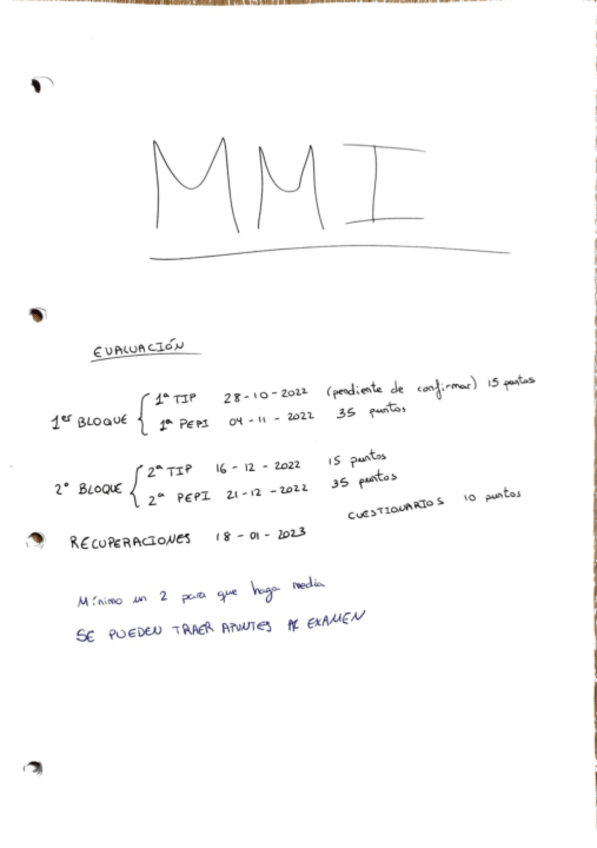 MMI
EVALUACIÓN
1er BLOQUE
1ª TIP 28-10-2022 (pendiente de confirmar) 15 puntos
1ª PEPI 04-11-2022 35 puntos
2º BLOQUE
2ª TIP 16-12-2022 15 puntos
2ª PEPI 21-12-2022 35 puntos
CUESTIONARIOS 10 puntos
RECUPERACIONES 18-01-2023
Mínimo un 2 para que haga media
SE PUEDEN TRAER APUNTES AL EXAMEN